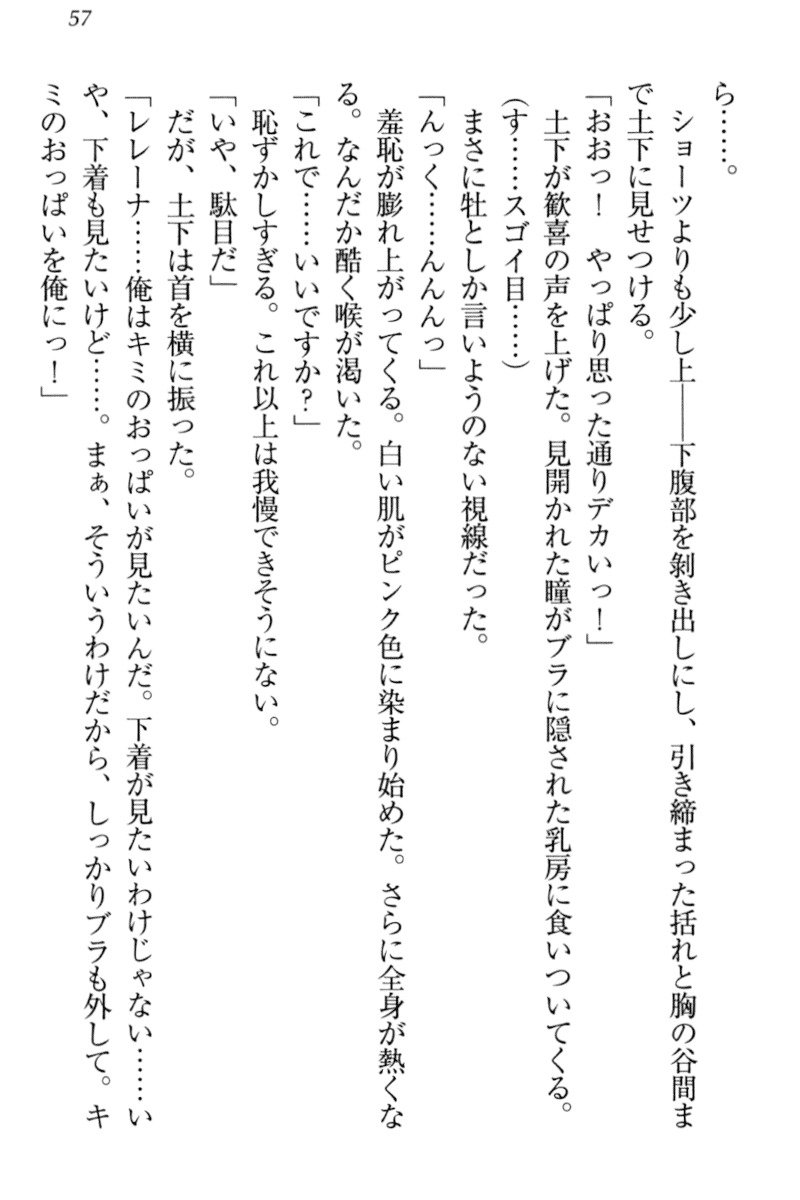 57
ら……。
ショーツよりも少し上――下腹部を剝き出しにし、引き締まった括れと胸の谷間ま
で土下に見せつける。
「おおっ！　やっぱり思った通りデカいっ！」
土下が歓喜の声を上げた。見開かれた瞳がブラに隠された乳房に食いついてくる。
(す……スゴイ目……)
まさに牡としか言いようのない視線だった。
「んっく……んんんっ」
羞恥が膨れ上がってくる。白い肌がピンク色に染まり始めた。さらに全身が熱くな
る。なんだか酷く喉が渇いた。
「これで……いいですか?」
恥ずかしすぎる。これ以上は我慢できそうにない。
「いや、駄目だ」
だが、土下は首を横に振った。
「レレーナ……俺はキミのおっぱいが見たいんだ。下着が見たいわけじゃない……い
や、下着も見たいけど……。まぁ、そういうわけだから、しっかりブラも外して。キ
ミのおっぱいを俺にっ！」